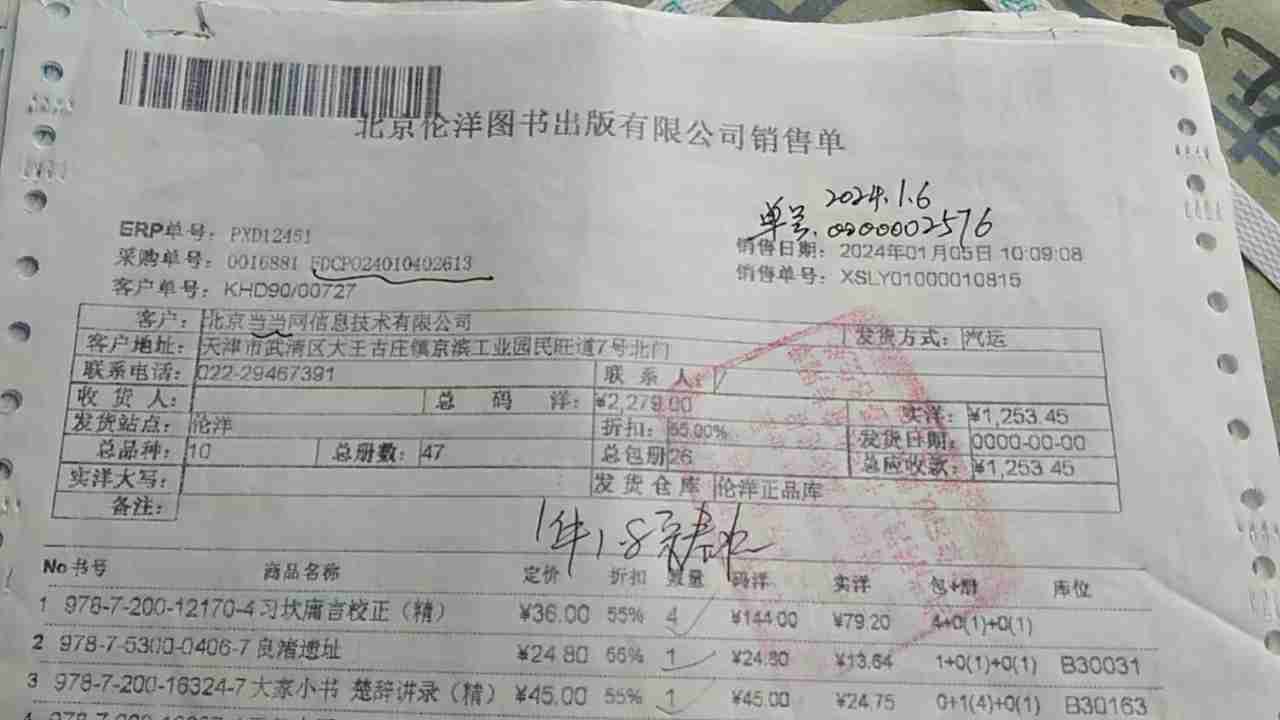 北京伦洋图书出版有限公司销售单
2024.1.6
单号:0200002576
ERP单号: PXD12451
采购单号: 0016881 FDCP024010402613
客户单号: KHD90/00727
销售日期: 2024年01月05日 10:09:08
销售单号: XSLY01000010815
客户: 北京当当网信息技术有限公司 发货方式: 汽运
客户地址: 天津市武清区大王古庄镇京滨工业园民旺道7号北门
联系电话: 022-29467391 联系人: /
收货人: 总码洋: ¥2,279.00 实洋: ¥1,253.45
发货站点: 伦洋 折扣: 55.00% 发货日期: 0000-00-00
总品种: 10 总册数: 47 总包册26 总应收款: ¥1,253.45
实洋大写: 发货仓库 伦洋正品库
备注:
1件1.8
No 书号 商品名称 定价 折扣 数量 码洋 实洋 包+册 库位
1 978-7-200-12170-4 习坎庸言校正（精） ¥36.00 55% 4 ¥144.00 ¥79.20 4+0(1)+0(1)
2 978-7-5300-0406-7 良渚遗址 ¥24.80 55% 1 ¥24.80 ¥13.64 1+0(1)+0(1) B30031
3 978-7-200-16324-7 大家小书 楚辞讲录（精） ¥45.00 55% 1 ¥45.00 ¥24.75 0+1(4)+0(1) B30163